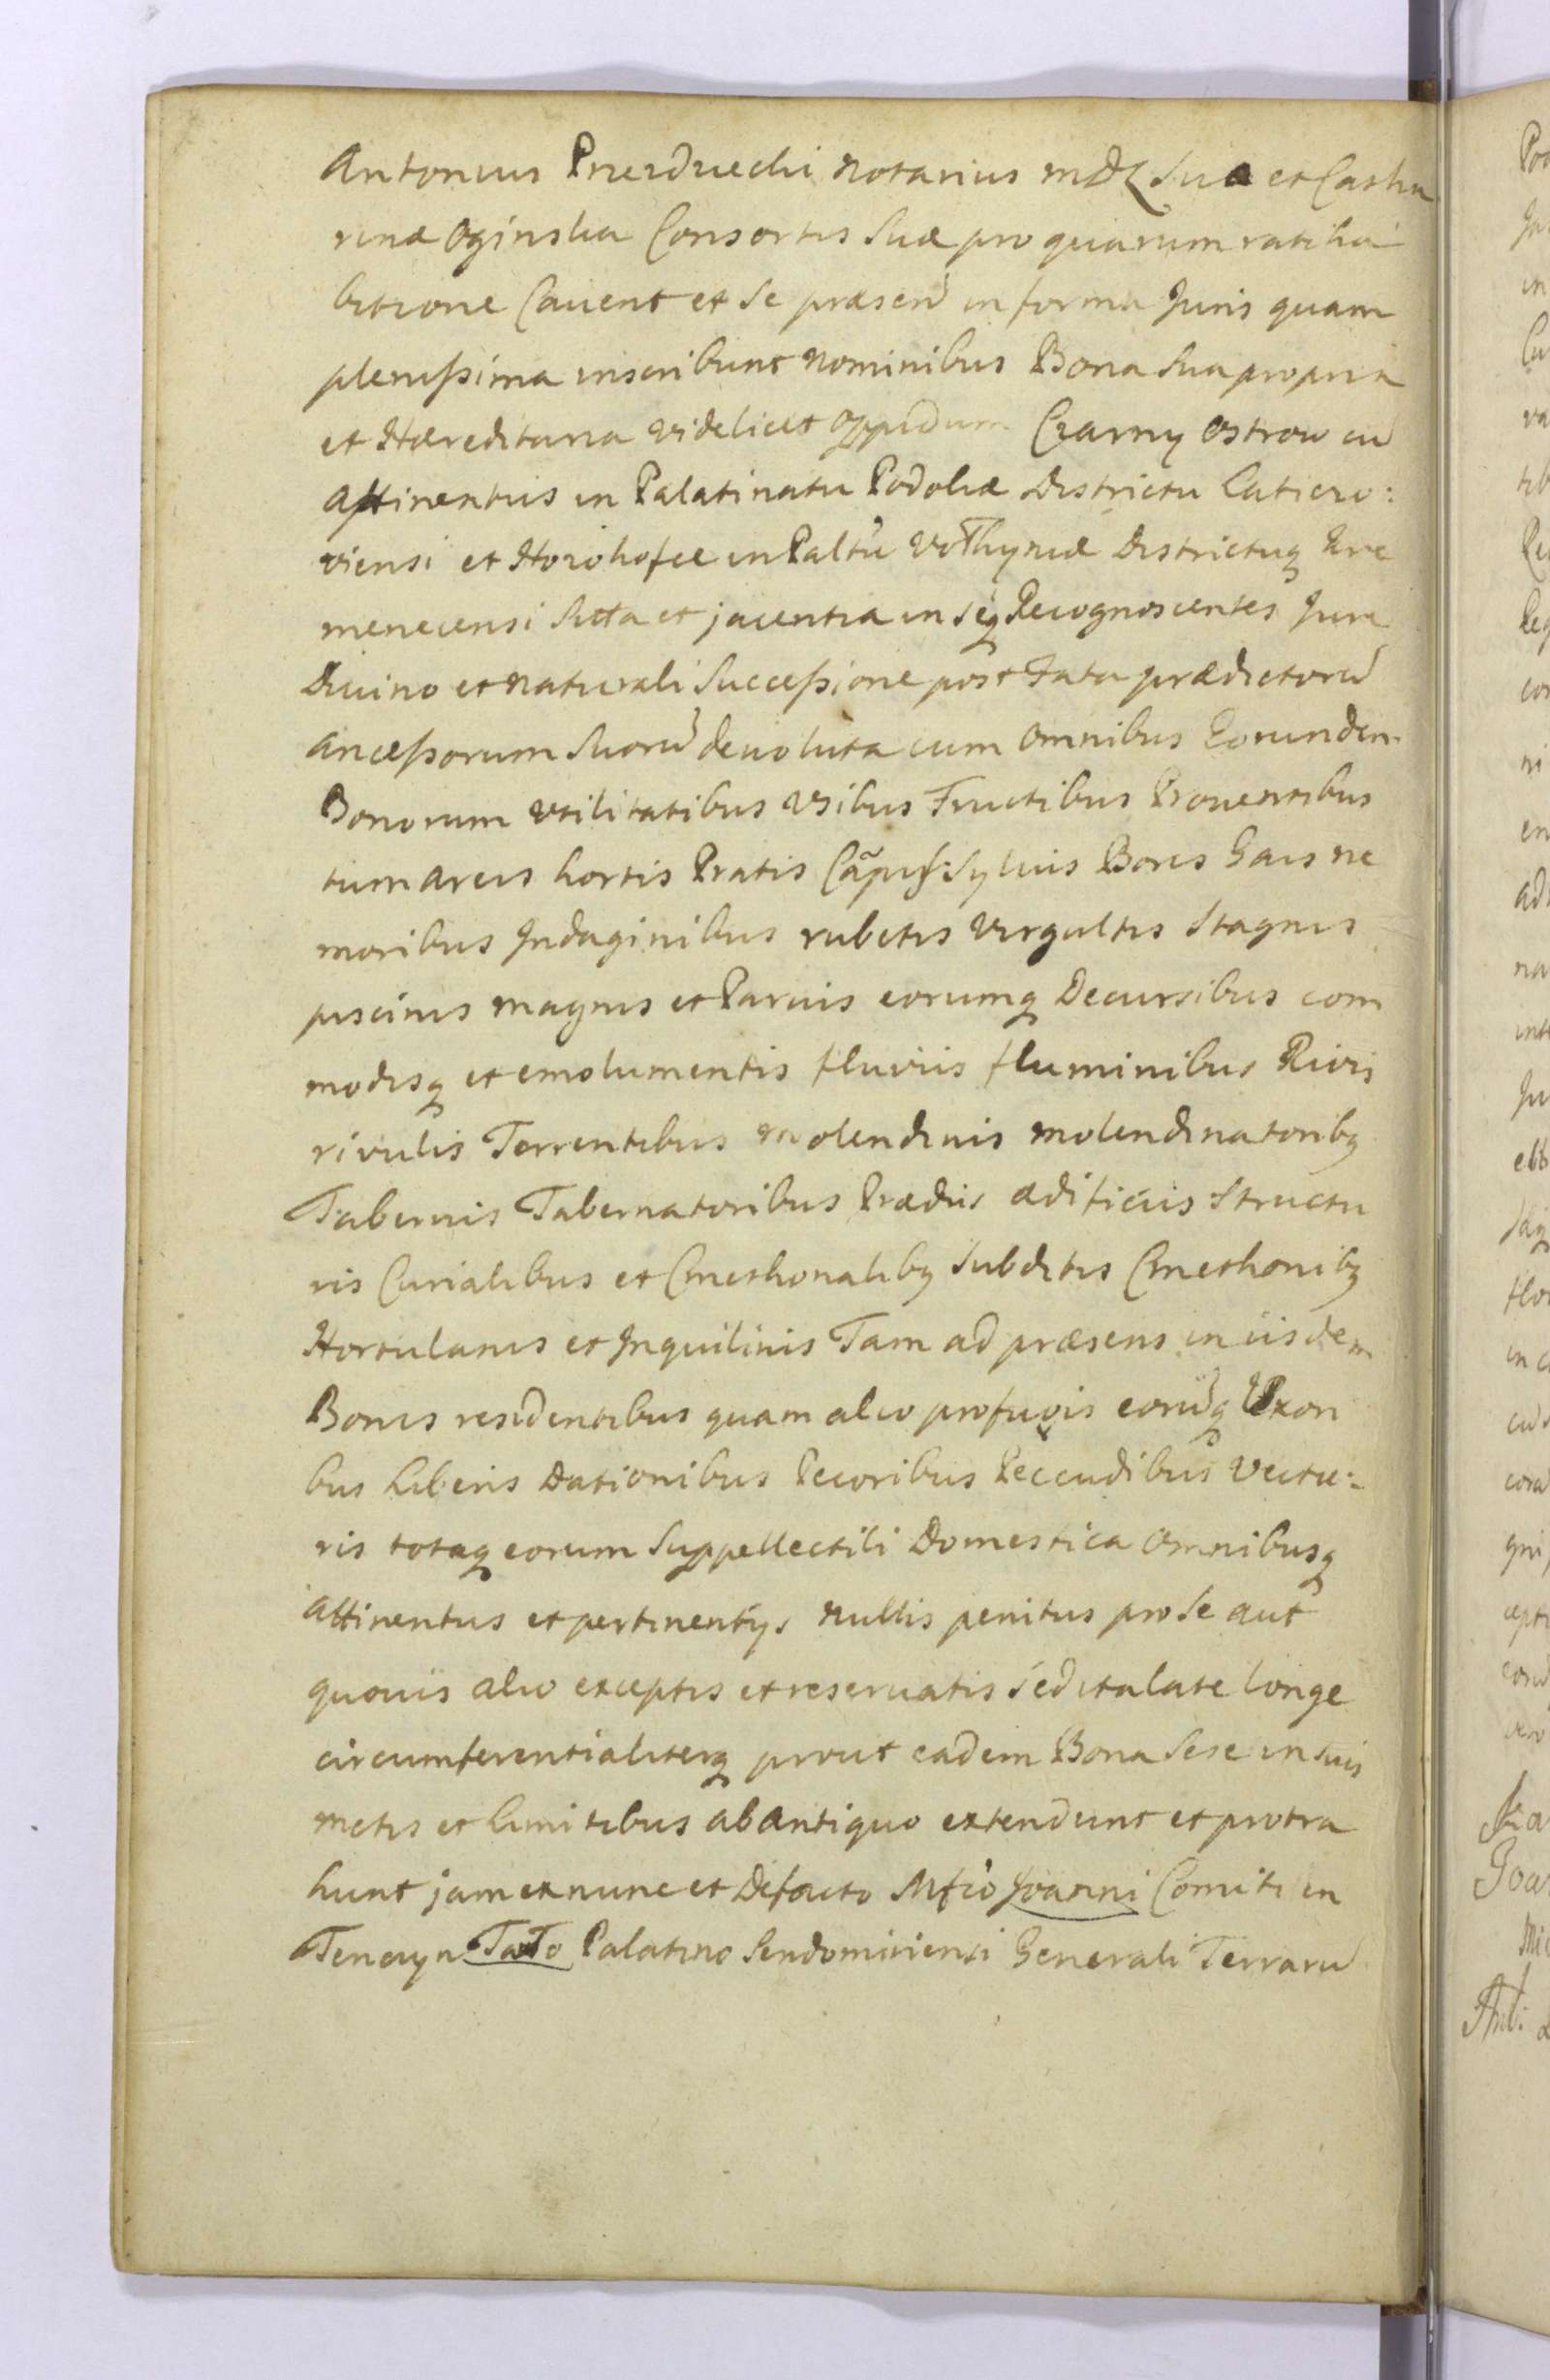 Antonius Przezdziecki Notarius MDL Sua et Catha
rinæ Oginska Consortis Suæ pro quarum ratiha
bitione Cavent et Se præsen in forma Juris quam
plenissima inscribunt Nominibus Bona Sua propria
et Hæreditaria videlicet Oppidum Czarny Ostrow cu
Attinentiis in Palatinatu Podoliæ Districtu Laticzo:
viensi et Horohofce in Paltu Volhyniæ Districtuq Kre
menecensi Sitta et jacentia in seq Recognoscentes Jure
Divino et Naturali Successione post Fata prædictorū
Ancessorum Suorū devoluta cum Omnibus Eorundem
Bonorum Utilitatibus Usibus Fructibus Proventibus
tum areis hortis Pratis Cãpis Sylvis Boris Gais ne
moribus Indaginibus rubetis Virgultis Stagnis
piscinis magnis et Parvis eorumq Decursibus com
modisq et emolumentis fluviis fluminibus Rivis
rivulis Torrentibus molendinis molendinatoribq
Tabernis Tabernatoribus Prædiis ædificiis Structu
ris Curialibus et Cmethonalibq Subditis Cmethonibq
Hortulanis et Inquilinis Tam ad præsens in iisdem
Bonis residentibus quam alio profugis eorūq Uxori
bus Liberis Dationibus Pecoribus Peccudibus Vectu:
ris totaq eorum Suppellectili Domestica Omnibusq
Attinentiis et pertinentijs nullis penitus pro Se aut
quovis alio exceptis et reservatis sed ita late longe
circumferentialiterq prout eadem Bona Sese in suis
metis et limitibus ab antiquo extendunt et protra
hunt jam ex nunc et Defacto Mfco Joanni Comiti in
Tenczyn Tarło Palatino Sendomiriensi Generali Terrarū